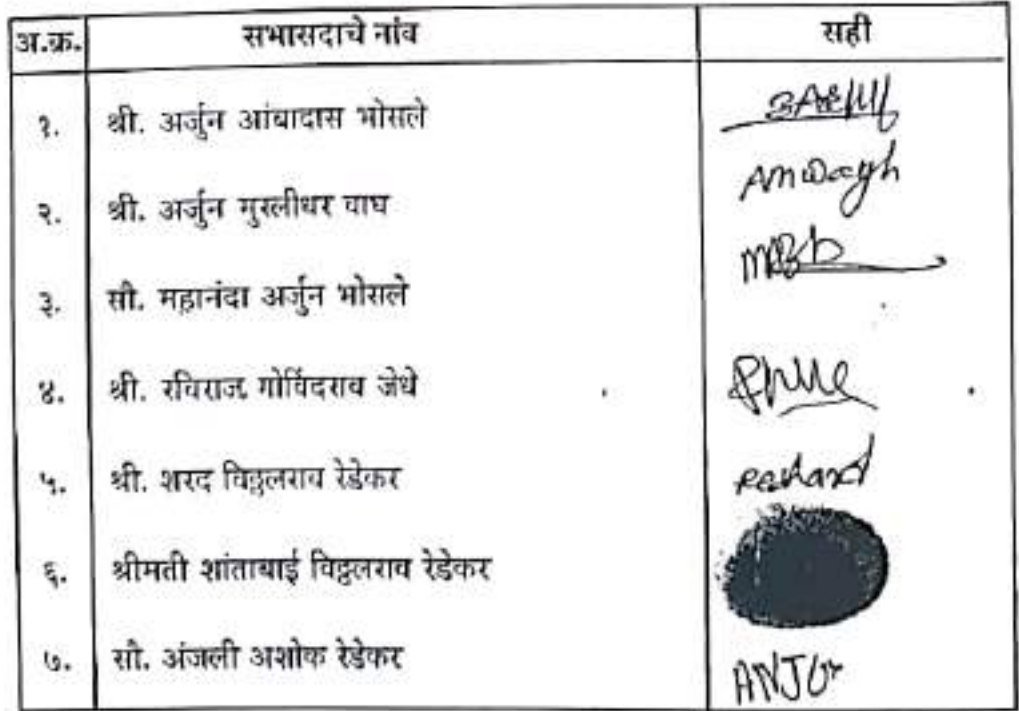 अ.क्र. सभासदाचे नांव सही
१. श्री. अर्जुन आंबादास भोसले
२. श्री. अर्जुन मुरलीधर वाघ Amwagh
३. सौ. महानंदा अर्जुन भोसले
४. श्री. रविराज गोविंदराव जेधे
५. श्री. शरद विठ्ठलराव रेडेकर
६. श्रीमती शांताबाई विठ्ठलराव रेडेकर
७. सौ. अंजली अशोक रेडेकर